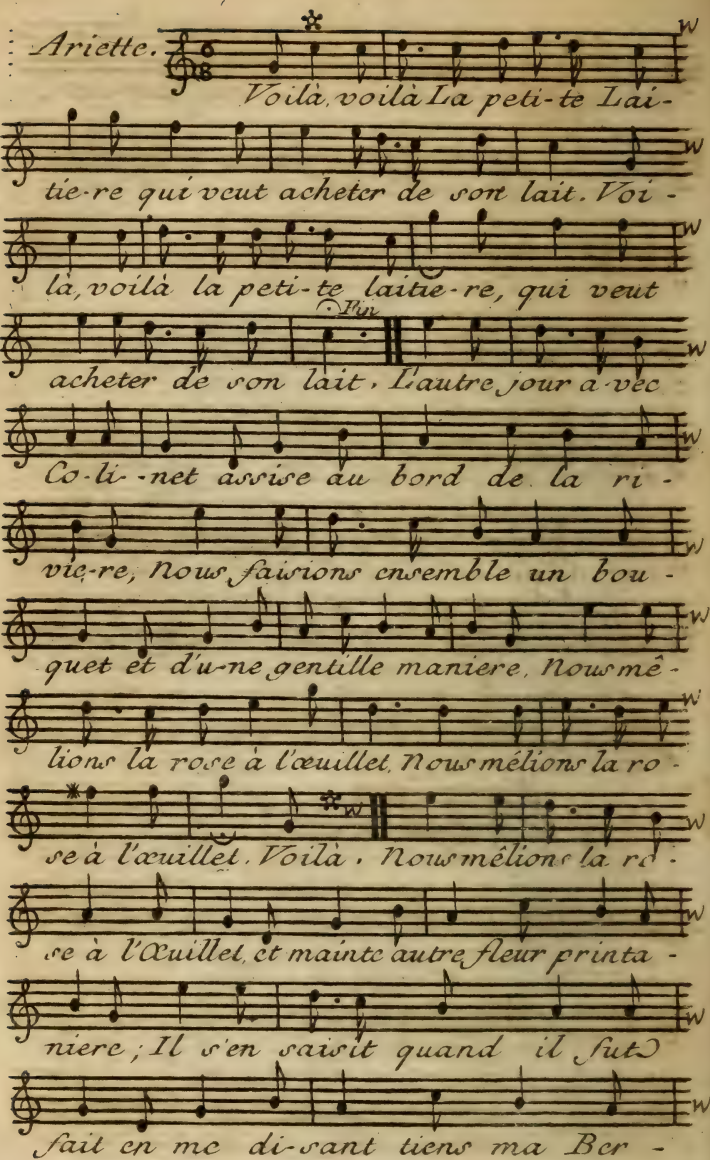 Ariette.
Voilà, voilà La peti-te Lai-
tie-re qui veut acheter de son lait. Voi-
là, voilà la peti-te laitie-re, qui veut
Fin
acheter de son lait. L'autre jour a-vec
Co-li--net assise au bord de la ri-
vie-re, Nous faisions ensemble un bou-
quet et d'u-ne gentille maniere, Nous mê-
lions la rose à l'œuillet, Nous mélions la ro-
se à l'œuillet. Voilà. Nous mêlions la ro-
se à l'Œuillet, et mainte autre fleur printa-
niere; Il s'en saisit quand il fut
fait en me di-sant tiens ma Ber-